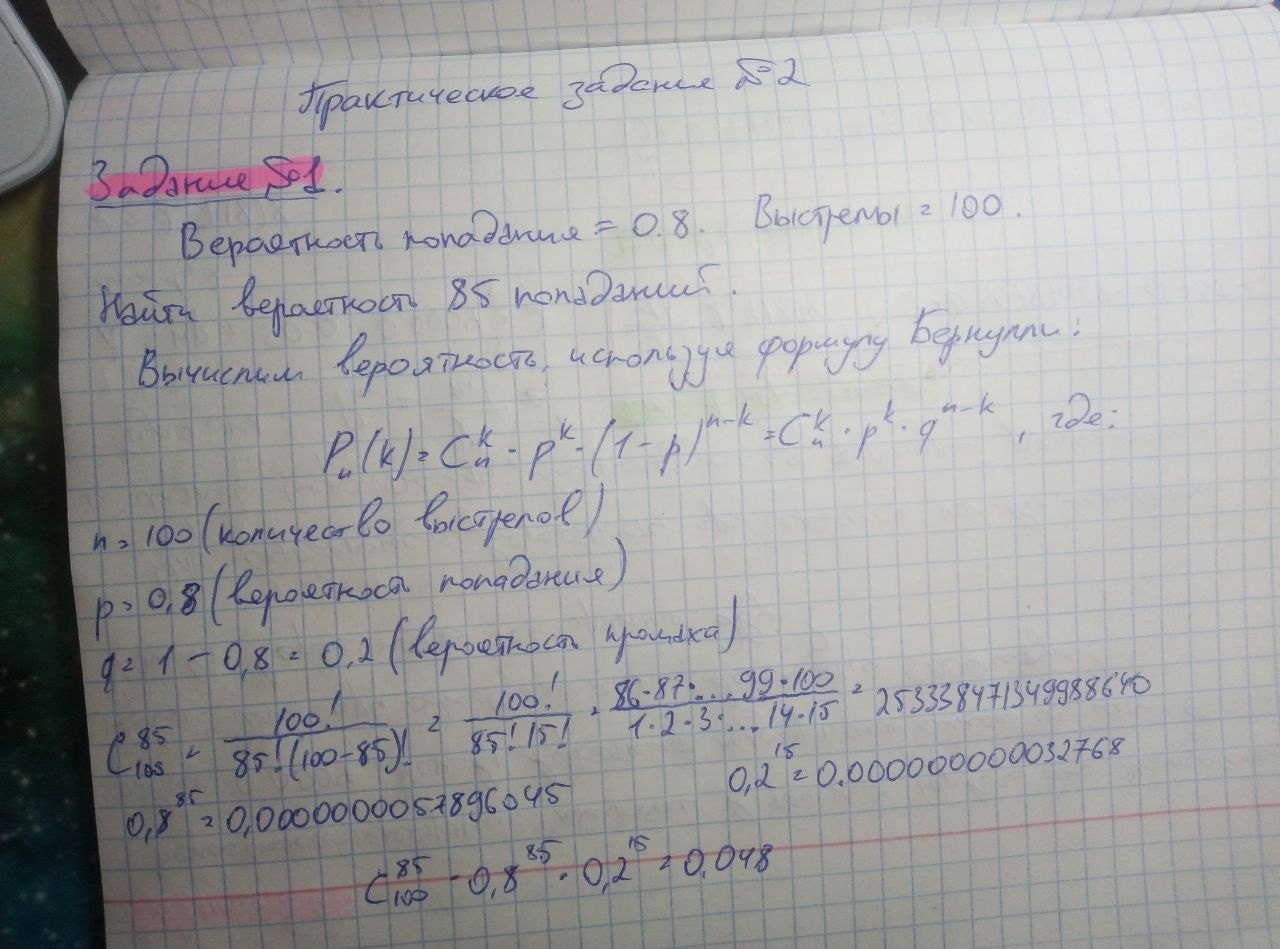 Практическое задание №2
Задание №1.
Вероятность попадания = 0.8. Выстрелы = 100.
Найти вероятность 85 попаданий.
Вычислим вероятность, используя формулу Бернулли:
Pₙ(k) = Cₙᵏ · pᵏ · (1-p)ⁿ⁻ᵏ = Cₙᵏ · pᵏ · qⁿ⁻ᵏ, где:
n = 100 (количество выстрелов)
p = 0,8 (вероятность попадания)
q = 1 - 0,8 = 0,2 (вероятность промаха)
C₁₀₀⁸⁵ = 100! / 85!(100-85)! = 100! / 85! 15! = 86·87·...99·100 / 1·2·3·...14·15 = 253338471349988640
0,8⁸⁵ = 0,0000000057896045 0,2¹⁵ = 0.000000000032768
C₁₀₀⁸⁵ · 0,8⁸⁵ · 0,2¹⁵ = 0,048